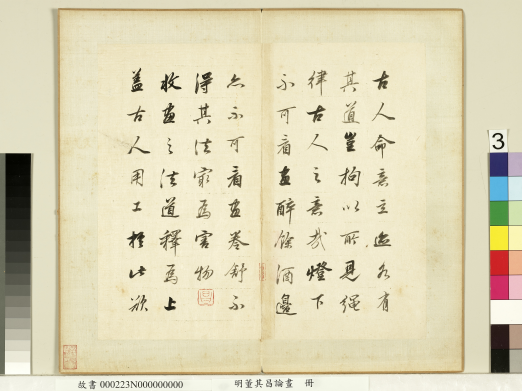 古人命意立迹各有
其道豈拘以所見繩
律古人之意哉燈下
不可看畫醉餘酒邊
亦不可看畫卷舒不
得其法最爲害物
收畫之法道釋爲上
蓋古人用工於此欲
3
故書 000223N000000000
明董其昌論畫 冊